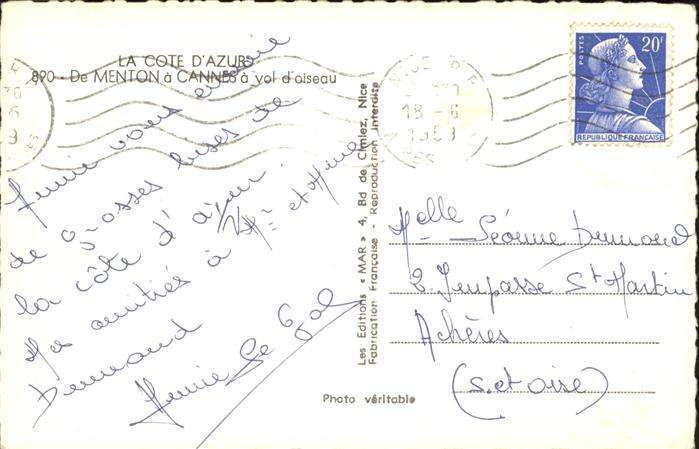 LA COTE D'AZUR
890 - De MENTON à CANNES à vol d'oiseau
Annie vous envoie
de grosses bises de
la côte d'azur.
Mes amitiés à Mr et Mme
Durand
Annie Le Gal
Les Editions « MAR » 4, Bd de Cimiez, Nice
Fabrication Française - Reproduction Interdite
Photo véritable
18 - 6
1959
POSTES
20F
REPUBLIQUE FRANÇAISE
Melle Léonne
2 Impasse St Martin
Achères
(S. et oise)